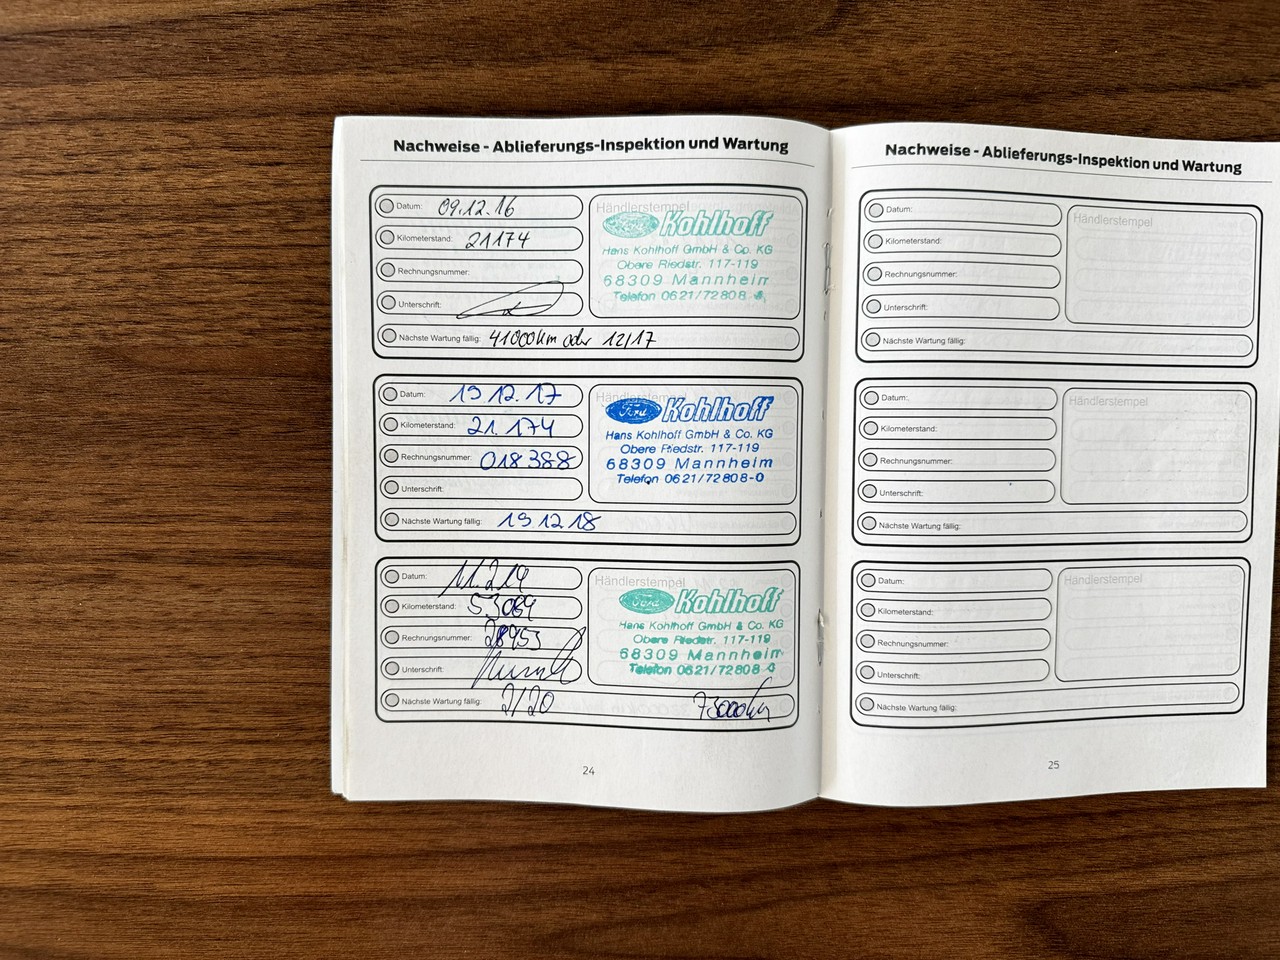 Nachweise - Ablieferungs-Inspektion und Wartung
Datum: 09.12.16
Kilometerstand: 21174
Rechnungsnummer:
Unterschrift:
Nächste Wartung fällig: 41000km oder 12/17
Händlerstempel
Kohlhoff
Hans Kohlhoff GmbH & Co. KG
Obere Riedstr. 117-119
68309 Mannheim
Telefon 0621/72808
Datum: 19 12. 17
Kilometerstand: 21. 174
Rechnungsnummer: 018388
Unterschrift:
Nächste Wartung fällig: 19 12 18
Händlerstempel
Ford Kohlhoff
Hans Kohlhoff GmbH & Co. KG
Obere Riedstr. 117-119
68309 Mannheim
Telefon 0621/72808-0
Datum: 11.2.19
Kilometerstand: 53064
Rechnungsnummer: 28953
Unterschrift:
Nächste Wartung fällig: 2/20 73000km
Händlerstempel
Ford Kohlhoff
Hans Kohlhoff GmbH & Co. KG
Obere Riedstr. 117-119
68309 Mannheim
Telefon 0621/72808
24
Nachweise - Ablieferungs-Inspektion und Wartung
Datum:
Kilometerstand:
Rechnungsnummer:
Unterschrift:
Nächste Wartung fällig:
Händlerstempel
Datum:
Kilometerstand:
Rechnungsnummer:
Unterschrift:
Nächste Wartung fällig:
Händlerstempel
Datum:
Kilometerstand:
Rechnungsnummer:
Unterschrift:
Nächste Wartung fällig:
Händlerstempel
25